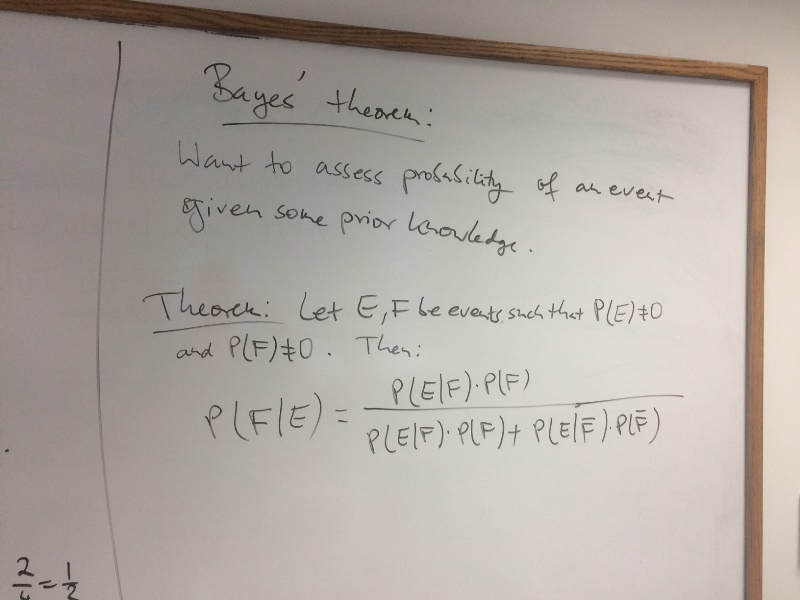 Bayes' theorem:
Want to assess probability of an event
given some prior knowledge.
Theorem: Let E, F be events such that P(E)≠0
and P(F)≠0. Then:
P(F|E) = P(E|F)·P(F) / P(E|F)·P(F) + P(E|F̄)·P(F̄)
2/4 = 1/2